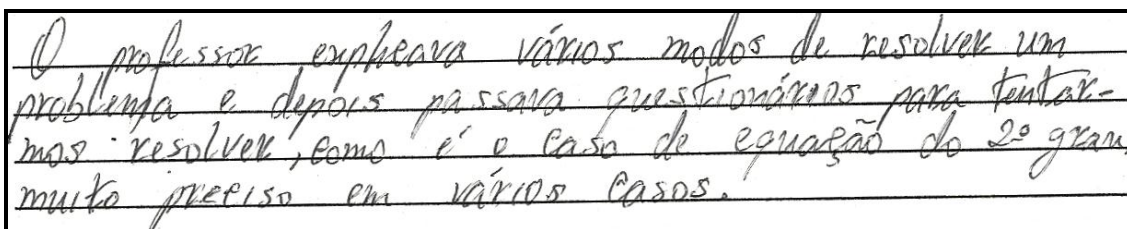 O professor explicava vários modos de resolver um
problema e depois passava questionários para tentar-
mos resolver, como é o caso de equação do 2º grau,
muito preciso em vários casos.